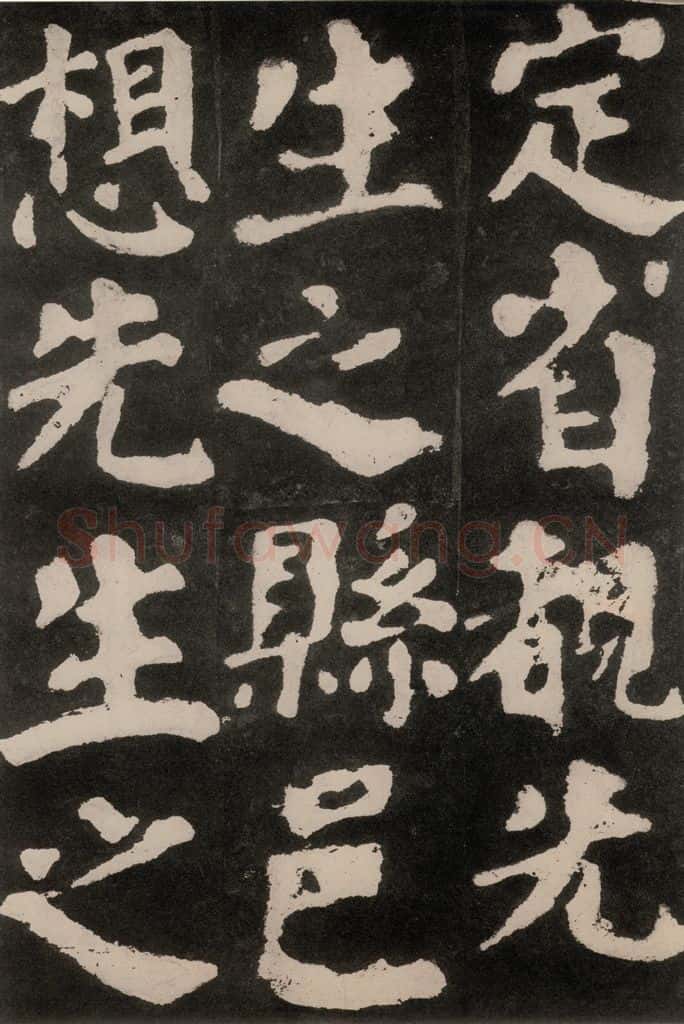 定省覩先
生之縣邑
想先生之
Shufawang.CN